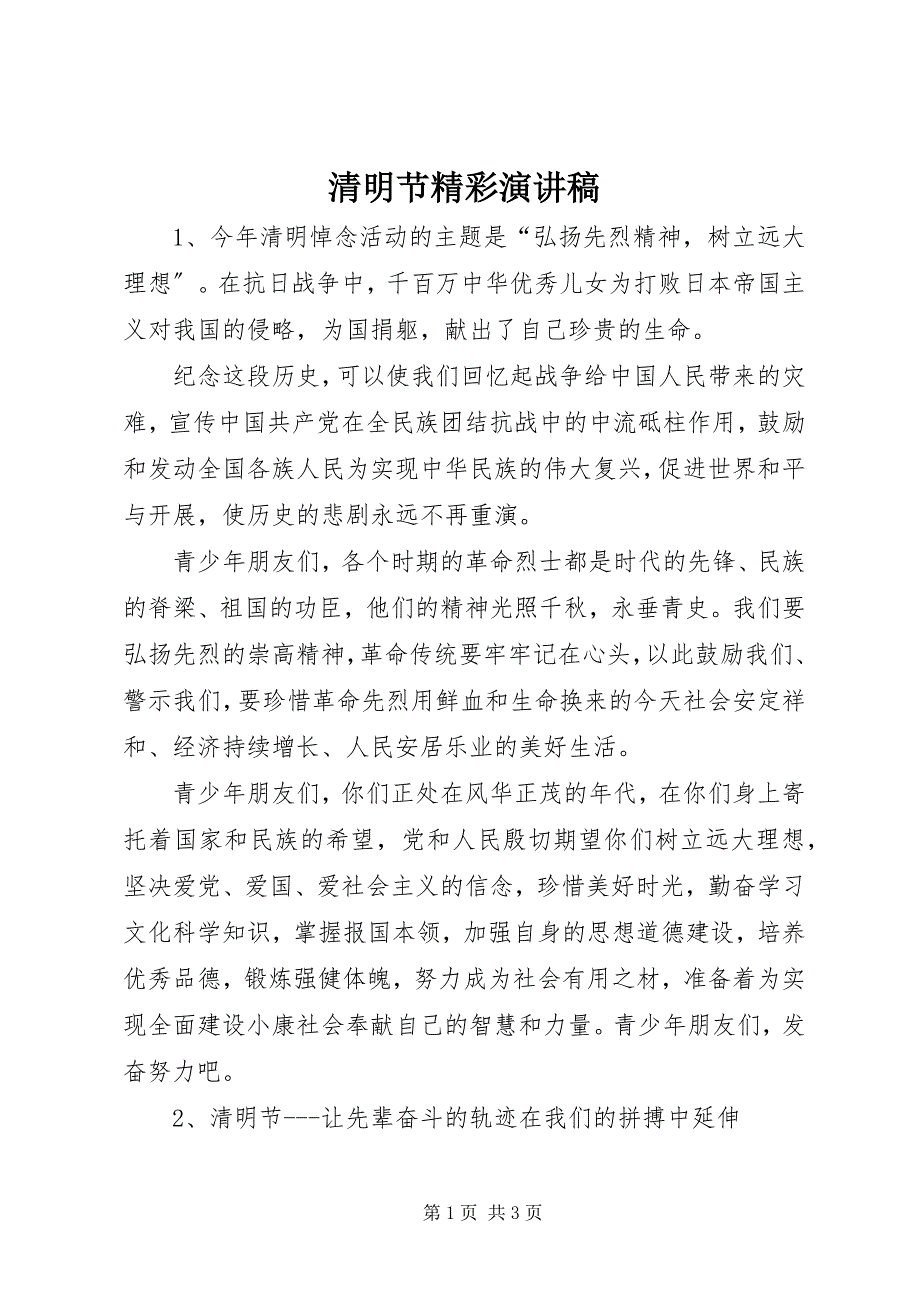 清明节精彩演讲稿
1、今年清明悼念活动的主题是“弘扬先烈精神，树立远大
理想〞。在抗日战争中，千百万中华优秀儿女为打败日本帝国主
义对我国的侵略，为国捐躯，献出了自己珍贵的生命。
纪念这段历史，可以使我们回忆起战争给中国人民带来的灾
难，宣传中国共产党在全民族团结抗战中的中流砥柱作用，鼓励
和发动全国各族人民为实现中华民族的伟大复兴，促进世界和平
与开展，使历史的悲剧永远不再重演。
青少年朋友们，各个时期的革命烈士都是时代的先锋、民族
的脊梁、祖国的功臣，他们的精神光照千秋，永垂青史。我们要
弘扬先烈的崇高精神，革命传统要牢牢记在心头，以此鼓励我们、
警示我们，要珍惜革命先烈用鲜血和生命换来的今天社会安定祥
和、经济持续增长、人民安居乐业的美好生活。
青少年朋友们，你们正处在风华正茂的年代，在你们身上寄
托着国家和民族的希望，党和人民殷切期望你们树立远大理想，
坚决爱党、爱国、爱社会主义的信念，珍惜美好时光，勤奋学习
文化科学知识，掌握报国本领，加强自身的思想道德建设，培养
优秀品德，锻炼强健体魄，努力成为社会有用之材，准备着为实
现全面建设小康社会奉献自己的智慧和力量。青少年朋友们，发
奋努力吧。
2、清明节---让先辈奋斗的轨迹在我们的拼搏中延伸
第 1 页 共 3 页